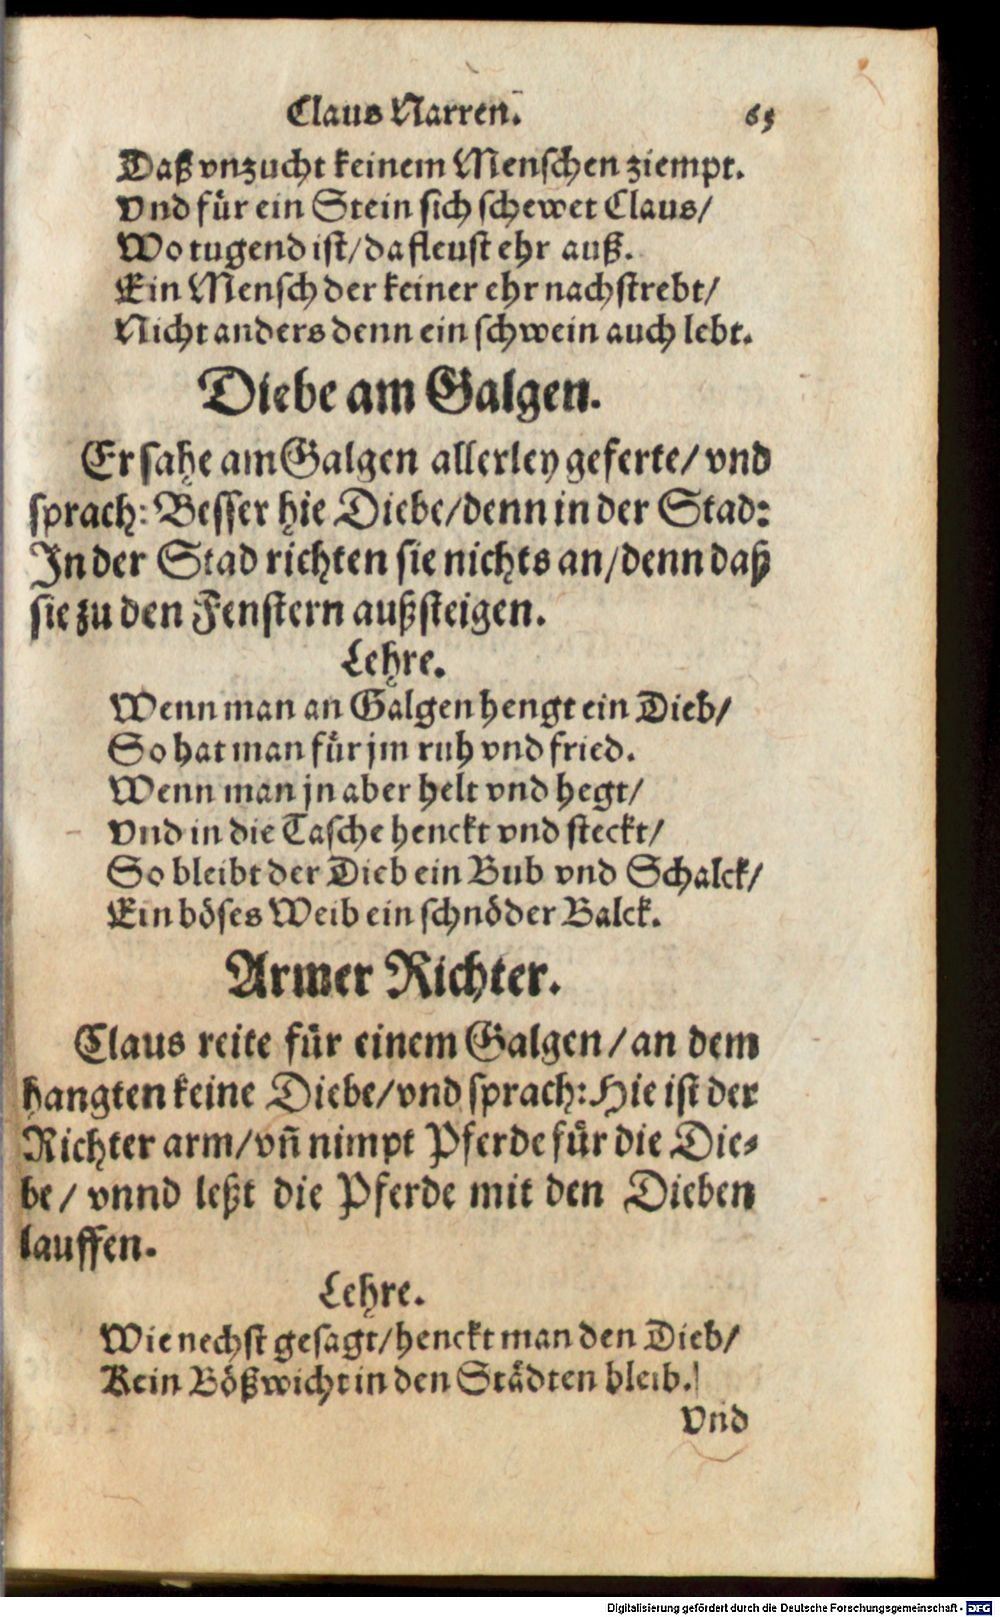 Claus Narren. 65
Daß vnzucht keinem Menschen ziempt.
Vnd für ein Stein sich schewet Claus/
Wo tugend ist/da fleust ehr auß.
Ein Mensch der keiner ehr nachstrebt/
Nicht anders denn ein schwein auch lebt.
Diebe am Galgen.
Er sahe am Galgen allerley geferte/ vnd
sprach: Besser hie Diebe/denn in der Stad:
In der Stad richten sie nichts an/denn daß
sie zu den Fenstern außsteigen.
Lehre.
Wenn man an Galgen hengt ein Dieb/
So hat man für jm ruh vnd fried.
Wenn man jn aber helt vnd hegt/
Vnd in die Tasche henckt vnd steckt/
So bleibt der Dieb ein Bub vnd Schalck/
Ein böses Weib ein schnöder Balck.
Armer Richter.
Claus reite für einem Galgen/an dem
hangten keine Diebe/vnd sprach: Hie ist der
Richter arm/vñ nimpt Pferde für die Die-
be/ vnnd leßt die Pferde mit den Dieben
lauffen.
Lehre.
Wie nechst gesagt/henckt man den Dieb/
Kein Bößwicht in den Städten bleib.
Vnd
Digitalisierung gefördert durch die Deutsche Forschungsgemeinschaft - DFG